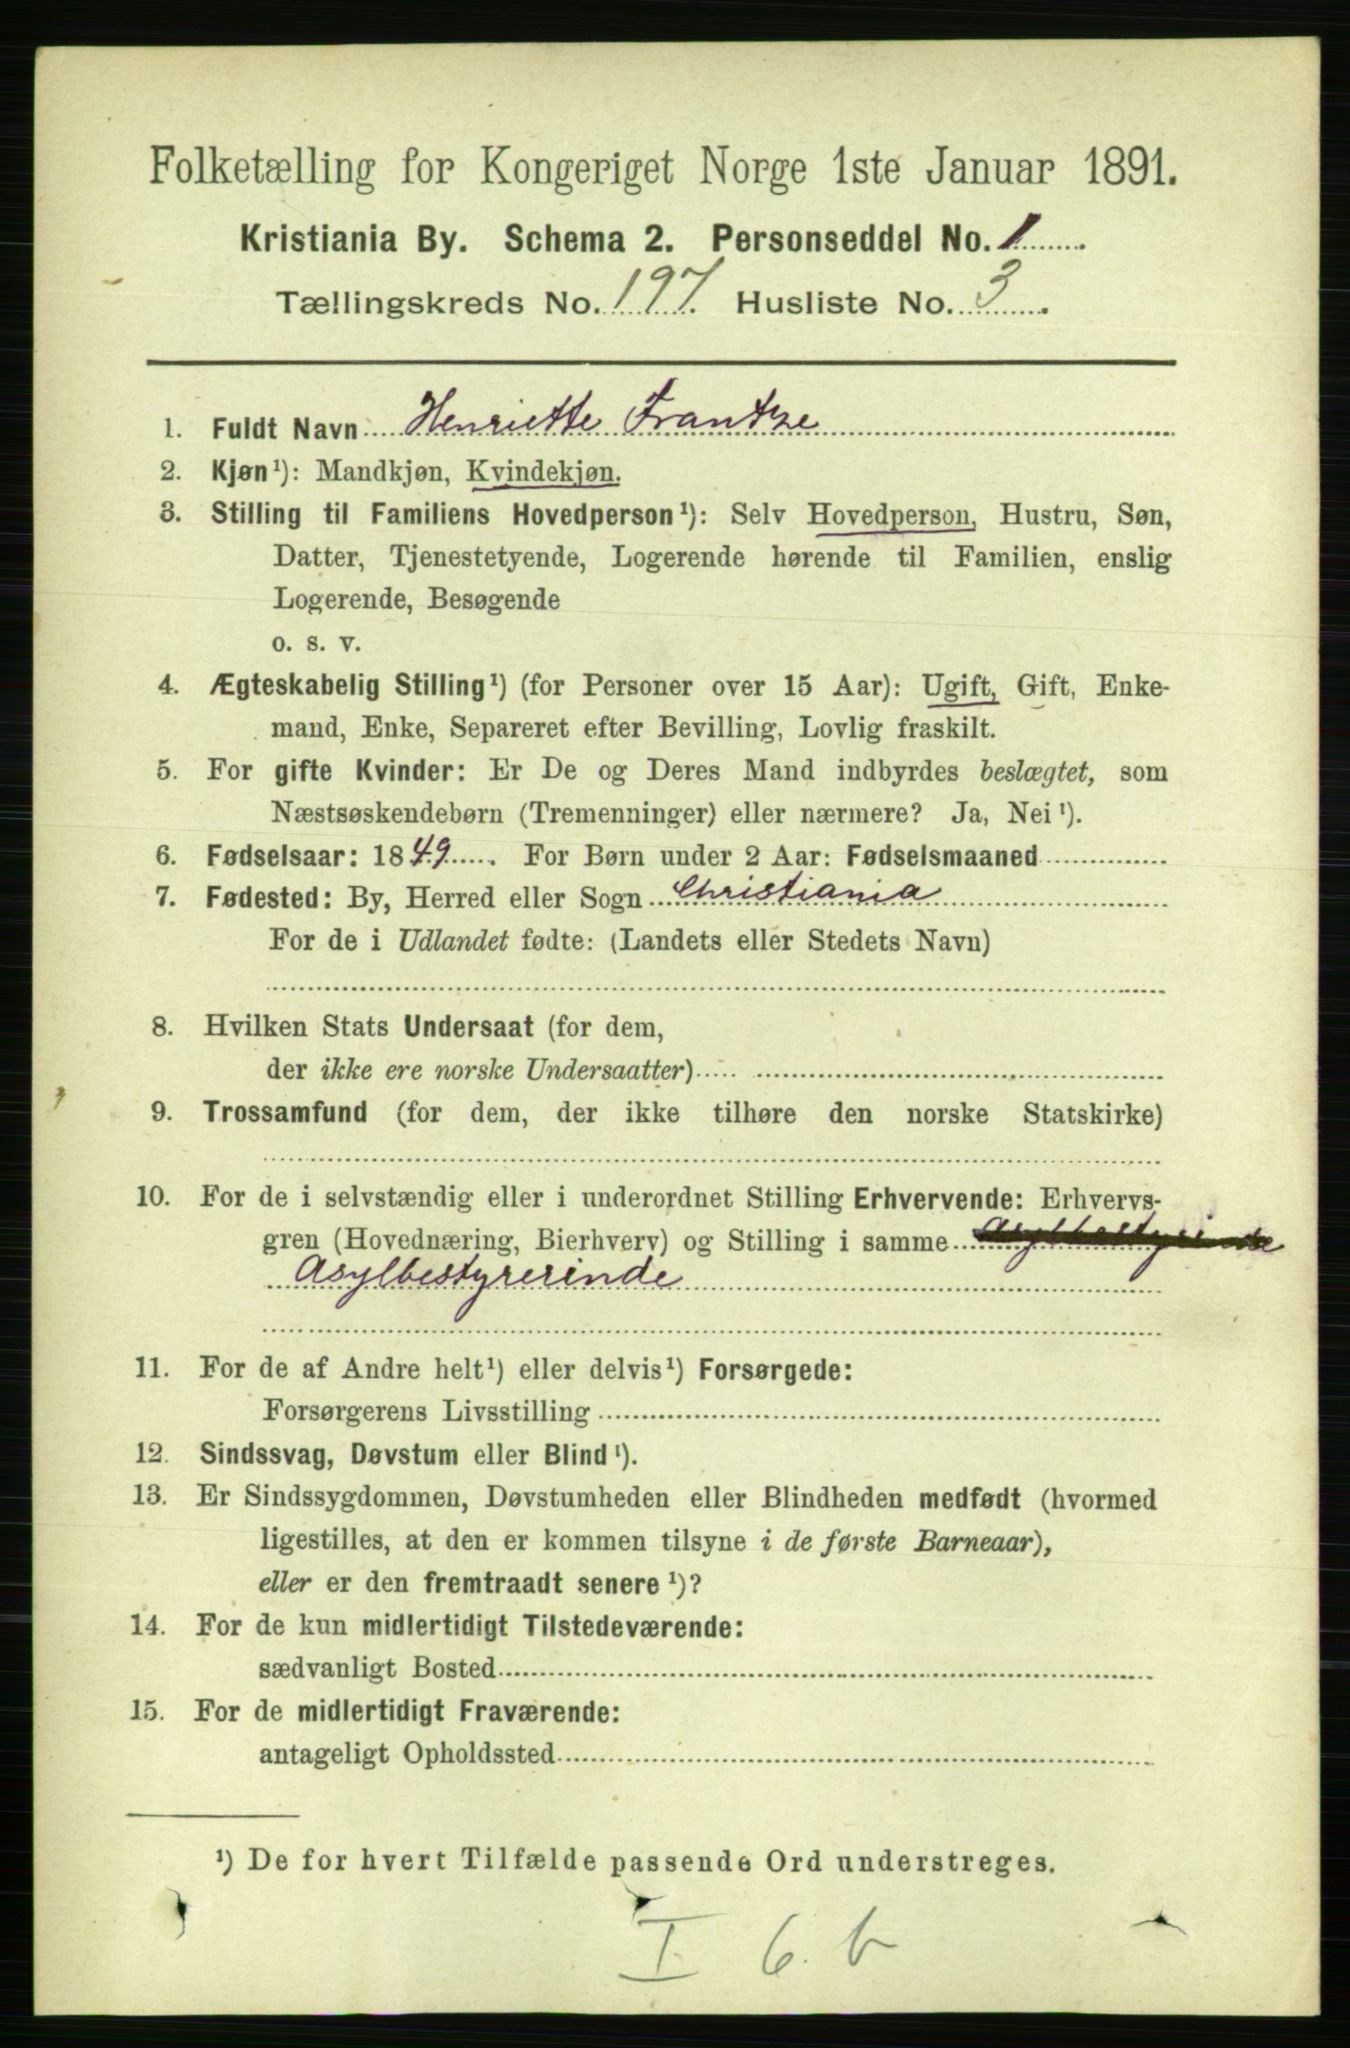 Folketælling for Kongeriget Norge 1ste Januar 1891.
Kristiania By. Schema 2. Personseddel No. 1
Tællingskreds No. 197. Husliste No. 3
1. Fuldt Navn Henriette Frantze
2. Kjøn¹): Mandkjøn, Kvindekjøn.
3. Stilling til Familiens Hovedperson¹): Selv Hovedperson, Hustru, Søn,
Datter, Tjenestetyende, Logerende hørende til Familien, enslig
Logerende, Besøgende
o. s. v.
4. Ægteskabelig Stilling¹) (for Personer over 15 Aar): Ugift, Gift, Enke-
mand, Enke, Separeret efter Bevilling, Lovlig fraskilt.
5. For gifte Kvinder: Er De og Deres Mand indbyrdes beslægtet, som
Næstsøskendebørn (Tremenninger) eller nærmere? Ja, Nei¹).
6. Fødselsaar: 1849. For Børn under 2 Aar: Fødselsmaaned
7. Fødested: By, Herred eller Sogn Christiania
For de i Udlandet fødte: (Landets eller Stedets Navn)
8. Hvilken Stats Undersaat (for dem,
der ikke ere norske Undersaatter)
9. Trossamfund (for dem, der ikke tilhøre den norske Statskirke)
10. For de i selvstændig eller i underordnet Stilling Erhvervende: Erhvervs-
gren (Hovednæring, Bierhverv) og Stilling i samme Asylbestyrerinde
Asylbestyrerinde
11. For de af Andre helt¹) eller delvis¹) Forsørgede:
Forsørgerens Livsstilling
12. Sindssvag, Døvstum eller Blind¹).
13. Er Sindssygdommen, Døvstumheden eller Blindheden medfødt (hvormed
ligestilles, at den er kommen tilsyne i de første Barneaar),
eller er den fremtraadt senere¹)?
14. For de kun midlertidigt Tilstedeværende:
sædvanligt Bosted
15. For de midlertidigt Fraværende:
antageligt Opholdssted
¹) De for hvert Tilfælde passende Ord understreges.
I 6. b